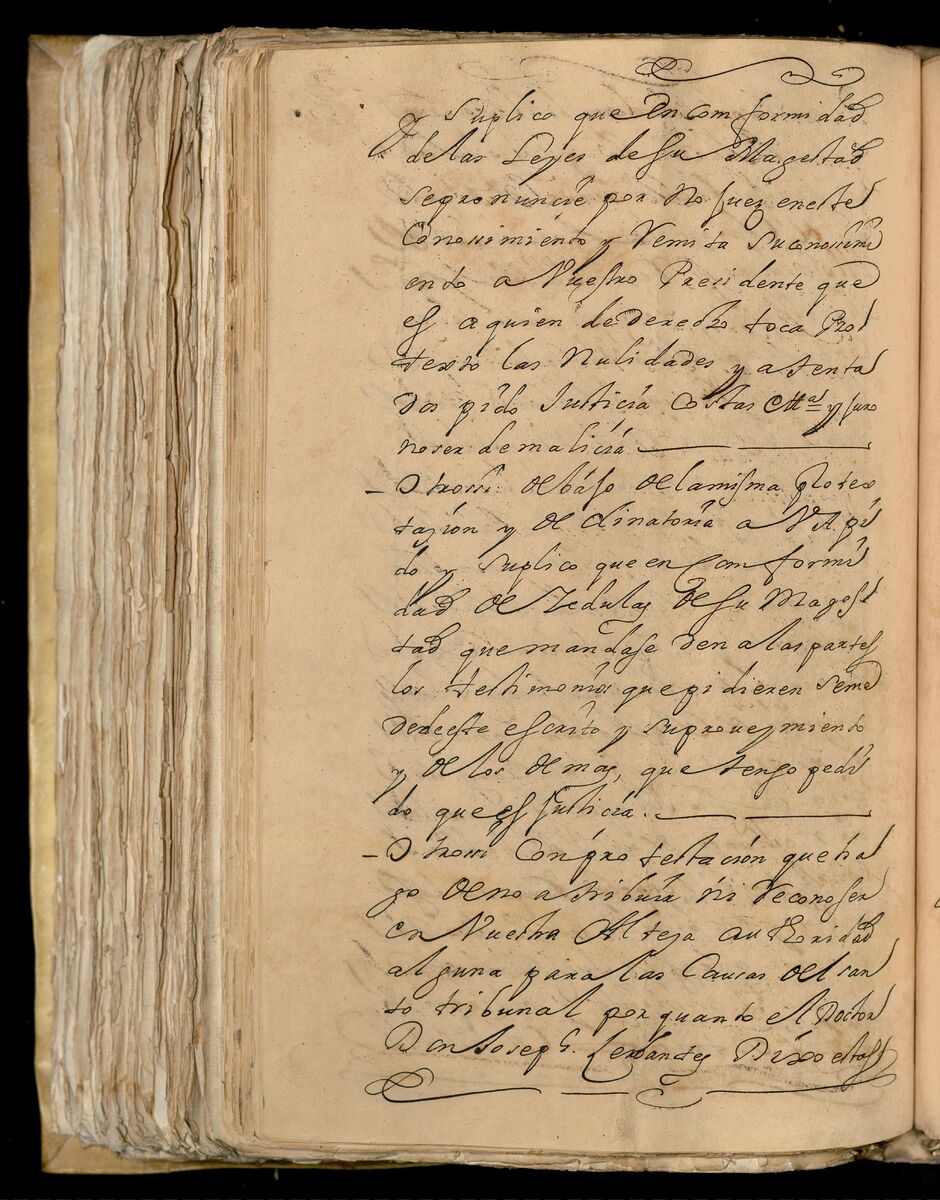 y Suplico que En comformidad
delas Leyes deSu Magestad
sepronuncie por No Juez eneste
Conossimiento y Remita suconossimi
ento a Vuestro Presidente que
es aquien dederecho toca Pro
texto las Nulidades y atenta
Dos pido Justicia costas y juro
noser demalicia
Otrossi debajo delamisma protex
tazion y declinatoria a V.A. pi
do y suplico que en Comformi
dad de Zedulas deSu Magest
tad que mandase den alas partes
los testimonios que pidieren seme
Dedeeste escrito y suproueymiento
y delos demas, que tengo pedi
do que es Justicia.
Otrossi Conprotestacion que ha
go deno atribuir ni Reconoser
en Vuestra Alteza authoridad
alguna para las Causas del san
to tribunal por quanto el Doctor
Don Joseph. Fernandes Dixo estas